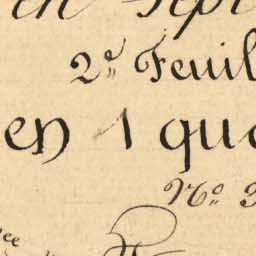 en Sept
2e Feuil
en 1 qua
No. 3